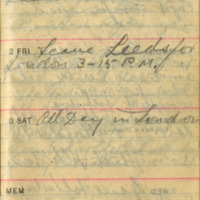 2 FRI Leave Leeds for
London 3-15 P.M.
3 SAT All Day in London
MEM